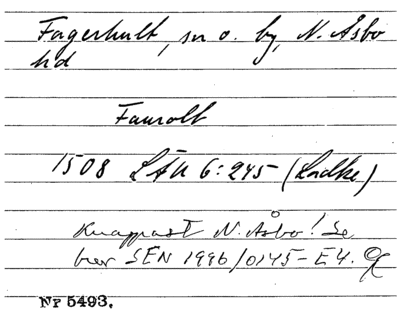 Fagerhult, sn o. by, N. Åsbo
hd
Faurolt
1508 LÅU 6:245 (Lodke)
Knappast N. Åsbo! Se
brev SEN 1996/0145-E4.
Nr 5493.